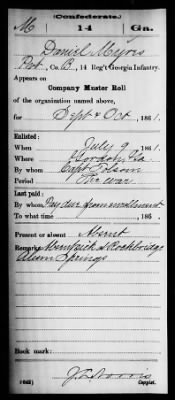 (Confederate.)
M 14 Ga.
Daniel Myris
Pvt, Co. B, 14 Reg't Georgia Infantry.
Appears on
Company Muster Roll
of the organization named above,
for Sept & Oct, 1861.
Enlisted:
When July 9, 1861.
Where Gordon, Ga.
By whom Capt. Folsom
Period The war
Last paid:
By whom Pay due from enrollment
To what time , 186 .
Present or absent Absent
Remarks: Sick at Rockbridge
Alum Springs
Book mark:
(642) Copyist.